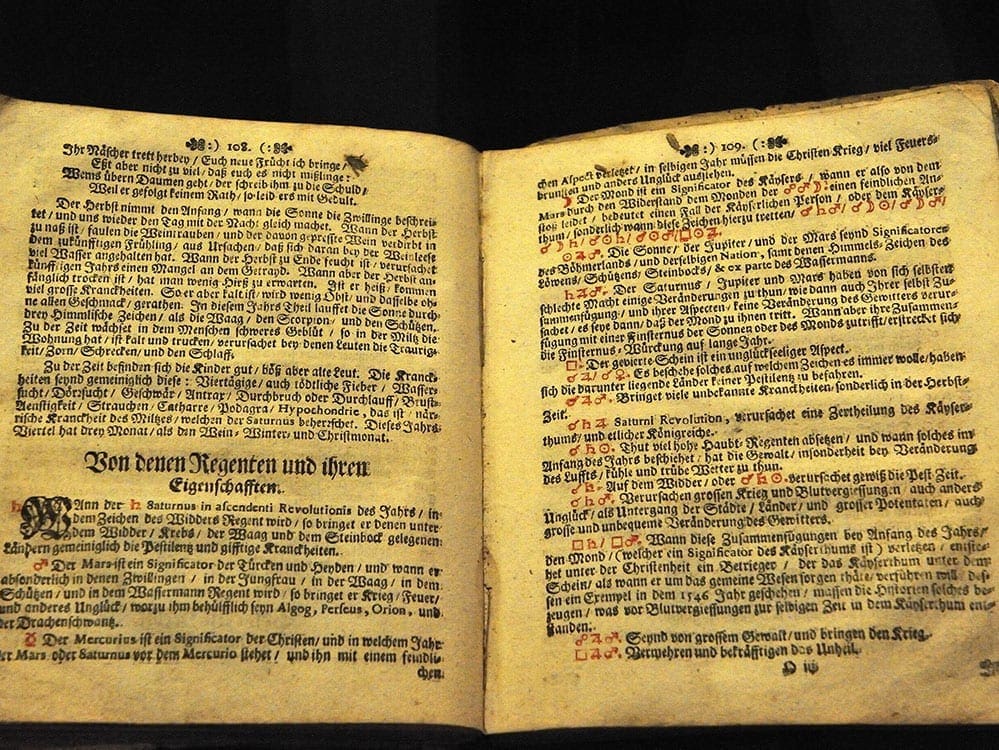 :) 108. (:
Ihr Näscher trett herbey / Euch neue Frücht ich bringe /
Eßt aber nicht zu viel / daß euch es nicht mißlinge:
Wems übern Daumen geht / der schreib ihm zu die Schuld /
Weil er gefolgt keinem Rath / so leid ers mit Gedult.
Der Herbst nimmt den Anfang / wann die Sonne die Zwillinge beschrei-
tet / und uns wieder den Tag mit der Nacht gleich machet. Wann der Herbst
zu naß ist / faulen die Weintrauben / und der davon gepreste Wein verdirbt in
dem zukünfftigen Frühling / aus Ursachen / daß sich daran bey der Weinleese
viel Wasser angehalten hat. Wann der Herbst zu Ende feucht ist / verursachet
künfftigen Jahrs einen Mangel an dem Getrayd. Wann aber der Herbst an-
fänglich trocken ist / hat man wenig Hirß zu erwarten. Ist er heiß / kommen
viel grosse Kranckheiten. So er aber kalt ist / wird wenig Obst / und dasselbe oh-
ne allen Geschmack / gerathen. In diesem Jahrs Theil laufft die Sonne durch
drey Himmlische Zeichen / als die Waag / den Scorpion / und den Schützen.
Zu der Zeit wächset in dem Menschen schweres Geblüt / so in der Miltz die
Wohnung hat / ist kalt und trucken / verursachet bey denen Leuten die Traurig-
keit / Zorn / Schrecken / und den Schlaff.
Zu der Zeit befinden sich die Kinder gut / böß aber alte Leut. Die Kranck-
heiten seynd gemeiniglich diese: Viertägige / auch tödtliche Fieber / Wasser-
sucht / Dörrsucht / Geschwär / Antrax / Durchbruch oder Durchlauff / Brust-
Aenstigkeit / Strauchen / Catharre / Podagra / Hypochondrie, das ist / när-
rische Kranckheit des Miltzes / welchen der Saturnus beherrschet. Dieses Jahrs
Viertel hat drey Monat / als den Wein- Winter- und Christmonat.
Von denen Regenten und ihren
Eigenschafften.
♄ WAnn der ♄ Saturnus in ascendenti Revolutionis des Jahrs / in
dem Zeichen des Widders Regent wird / so bringet er denen unter
dem Widder / Krebs / der Waag und dem Steinbock gelegenen
Ländern gemeiniglich die Pestilentz und gifftige Kranckheiten.
♂ Der Mars ist ein Significator der Türcken und Heyden / und wann er
absonderlich in denen Zwillingen / in der Jungfrau / in der Waag / in dem
Schützen / und in dem Wassermann Regent wird / so bringet er Krieg / Feuer /
und anderes Unglück / worzu ihm behülfflich seyn Algog, Perseus, Orion, und
der Drachenschwantz.
☿ Der Mercurius ist ein Significator der Christen / und in welchem Jahr
der Mars oder Saturnus vor dem Mercurio stehet / und ihn mit einem feindli-
chen
:) 109. (:
chen Aspect verletzet / in selbigen Jahr müssen die Christen Krieg / viel Feuers-
brunsten und anders Unglück ausstehen.
☽ Der Mond ist ein Significator des Käysers / wann er also von dem
Mars durch den Widerstand dem Monden der ☍♂☽ einen feindlichen An-
stoß leidet / bedeutet einen Fall der Käyserlichen Person / oder dem Käyser-
thum / sonderlich wann diese Zeichen hierzu tretten /
☉♃♂. Die Sonne / der Jupiter / und der Mars seynd Significatores
des Böhmerlands / und derselbigen Nation, samt denen Himmels-Zeichen des
Löwens / Schützens / Steinbocks / & ex parte des Wassermanns.
♄♃♂. Der Saturnus / Jupiter und Mars haben von sich selbsten
schlechte Macht einige Veränderungen zu thun / wie dann auch Ihrer selbst Zu-
sammenfügung / und ihrer Aspecten / keine Veränderung des Gewitters verur-
sachet / es seye dann / daß der Mond zu ihnen tritt. Wann aber ihre Zusammen-
fügung mit einer Finsternus der Sonnen oder des Monds zutrifft / erstrecket sich
die Finsternus-Würckung auf lange Jahr.
□. Der gevierte Schein ist ein unglückseeliger Aspect.
☌♃/♂♀. Es beschehe solches auf welchem Zeichen es immer wolle / haben
sich die darunter liegende Länder keiner Pestilentz zu befahren.
☌♄♂. Bringet viele unbekannte Kranckheiten / sonderlich in der Herbst-
Zeit.
☌♄♃ Saturni Revolution, verursachet eine Zertheilung des Käyser-
thums / und etlicher Königreiche.
☌♄☉. Thut viel hohe Haubt-Regenten absetzen / und wann solches im
Anfang des Jahrs beschiehet / hat die Gewalt / insonderheit bey Veränderung
des Luffts / kühle und trübe Wetter zu thun.
☌♄. Auf dem Widder / oder ☌♄☉. verursachet gewiß die Pest Zeit.
☌♄♂. Verursachen grossen Krieg und Blutvergiessungen / auch anders
Unglück / als Untergang der Städte / Länder / und grosser Potentaten / auch
grosse und unbequeme Veränderung des Gewitters.
□♄/□♂. Wann diese Zusammenfügungen bey Anfang des Jahrs /
den Mond / (welcher ein Significator des Käyserthums ist) verletzen / entste-
het unter der Christenheit ein Betrieger / der das Käyserthum unter dem
Schein / als wann er um das gemeine Wesen sorgen thäte / verführen will / des-
sen ein Exempel in dem 1546 Jahr geschehen / massen die Historien solches be-
zeugen / was vor Blutvergiessung zur selbigen Zeit in dem Käyserthum ent-
standen.
☍♃♂. Seynd von grossem Gewalt / und bringen den Krieg.
□♃♂. Verwehren und bekräfftigen das Unheil.